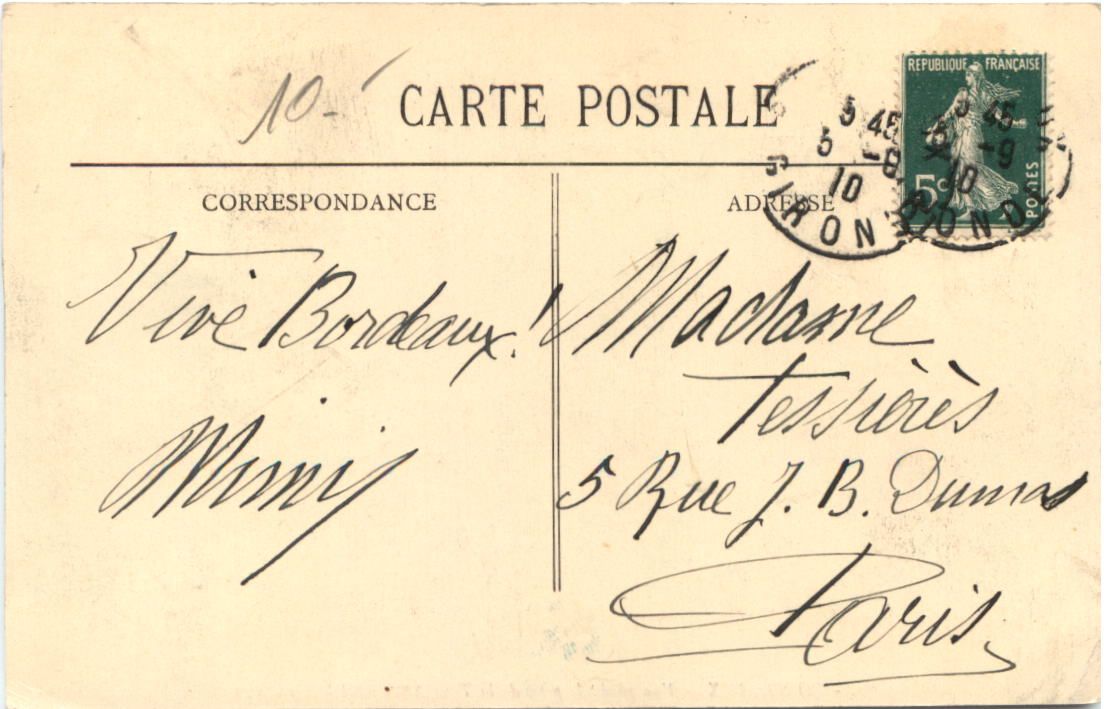 10-
CARTE POSTALE
REPUBLIQUE FRANÇAISE
5c
POSTES
3 45
5 -9
10
GIRONDE
3 45
-9
10
CORRESPONDANCE
ADRESSE
Vive Bordeaux!
Mimi
Madame
Tessières
5 Rue J. B. Dumas
Paris